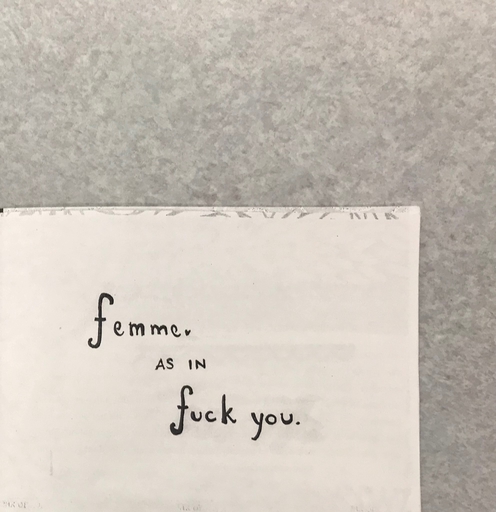 femme.
AS IN
fuck you.